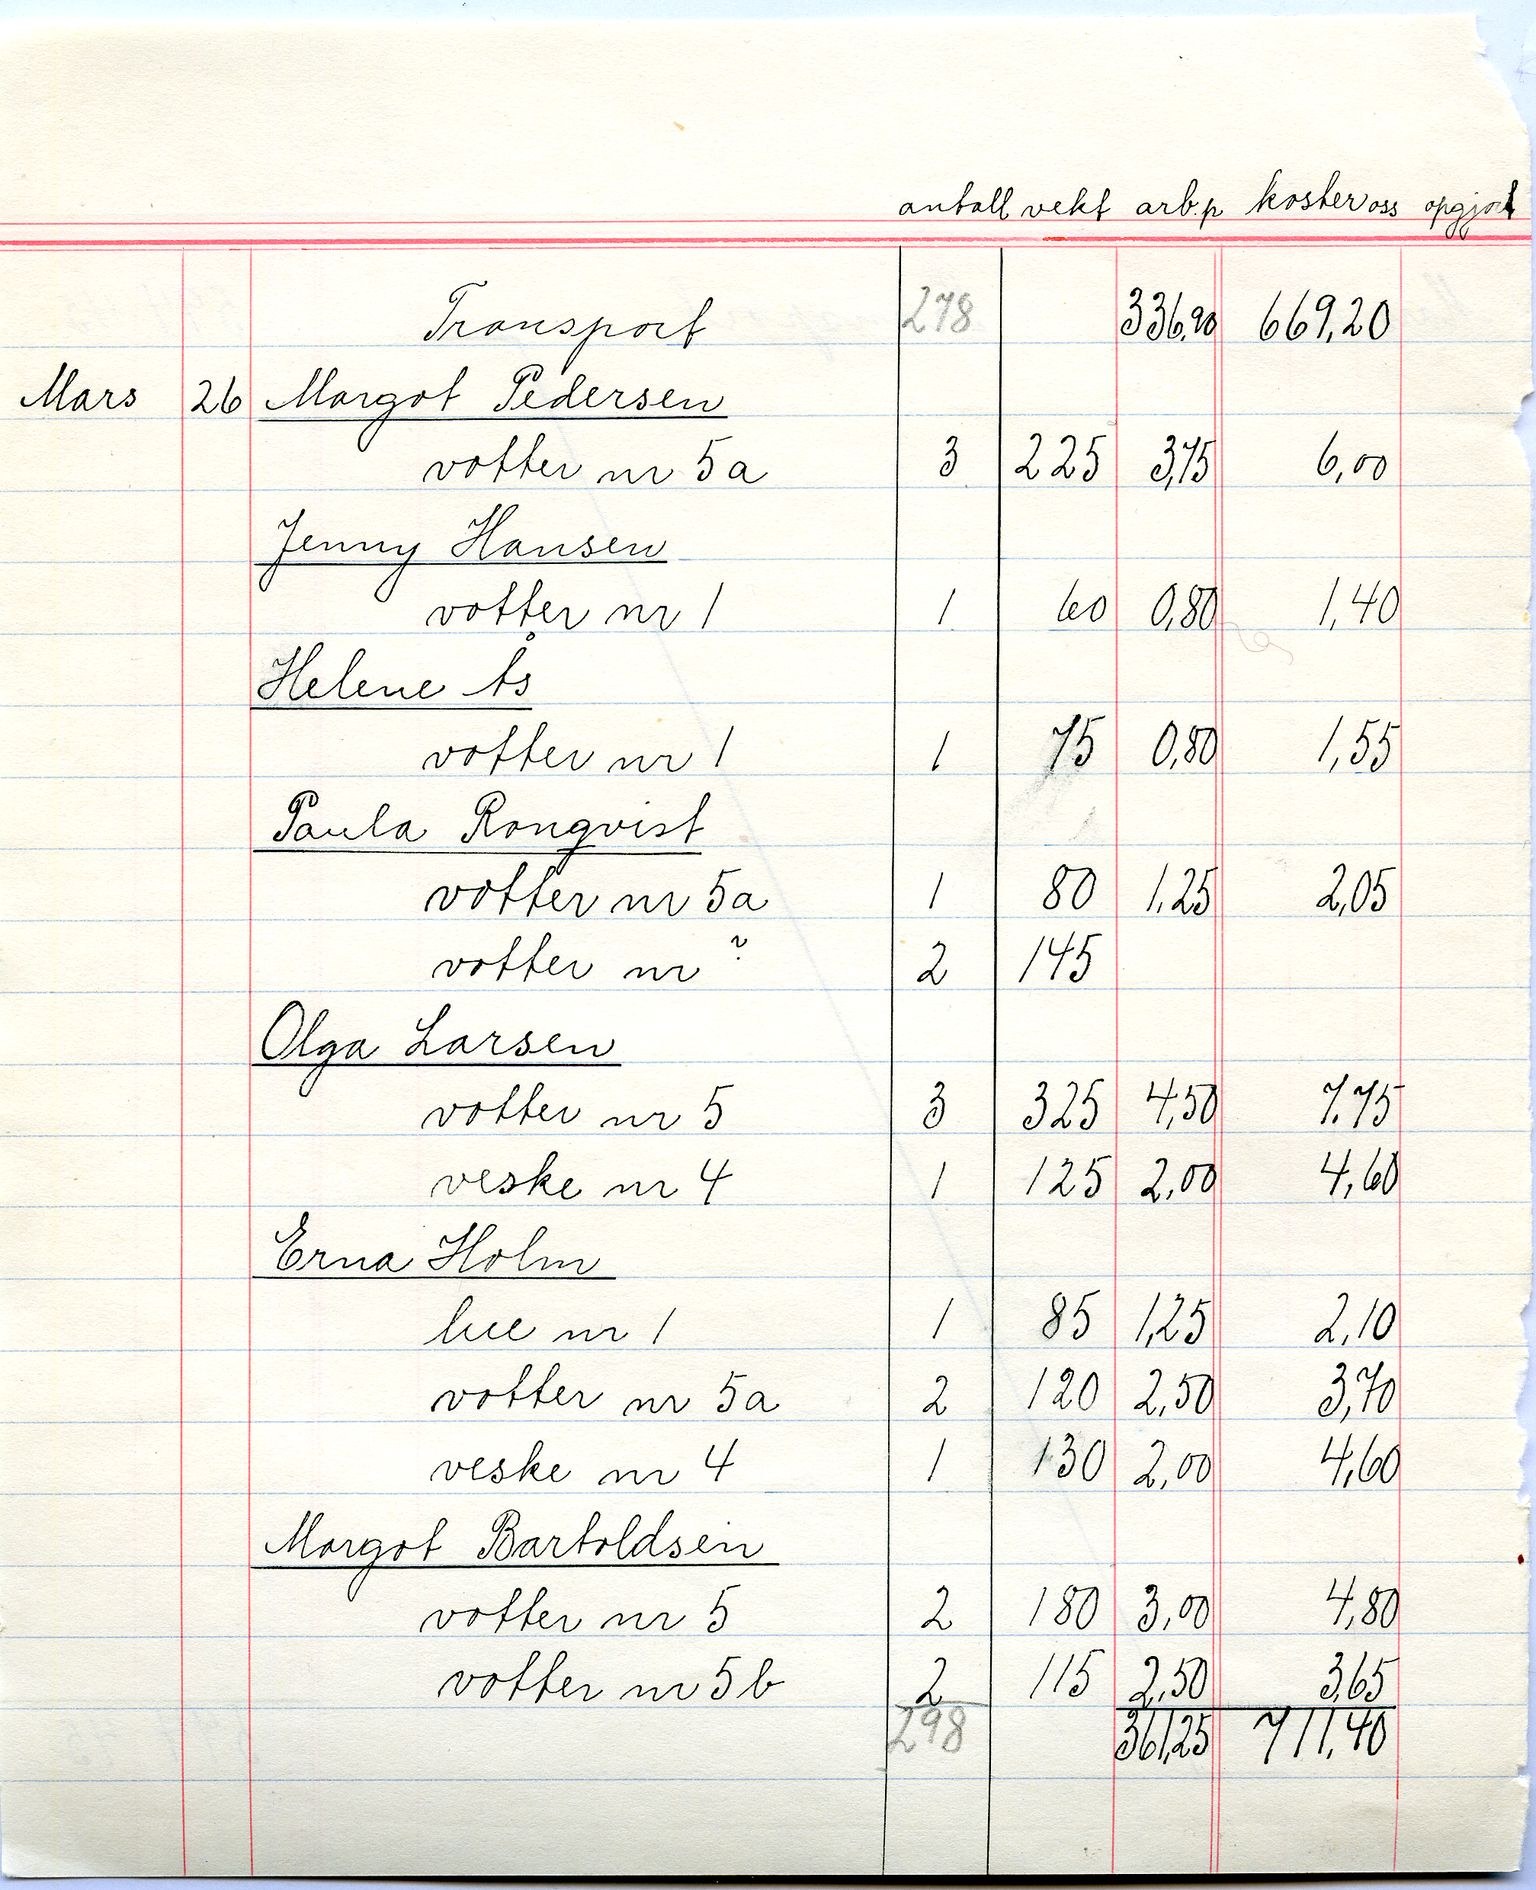 antall vekt arb.p koster oss opgjort
Transport 278 336,90 669,20
Mars 26 Margot Pedersen
votter nr 5a 3 225 3,75 6,00
Jenny Hansen
votter nr 1 1 60 0,80 1,40
Helene Ås
votter nr 1 1 75 0,80 1,55
Paula Ronqvist
votter nr 5a 1 80 1,25 2,05
votter nr ? 2 145
Olga Larsen
votter nr 5 3 325 4,50 7.75
veske nr 4 1 125 2,00 4,60
Erna Holm
lue nr 1 1 85 1,25 2,10
votter nr 5a 2 120 2,50 3,70
veske nr 4 1 130 2,00 4,60
Margot Bartoldsen
votter nr 5 2 180 3,00 4,80
votter nr 5b 2 115 2,50 3,65
298 361,25 711,40